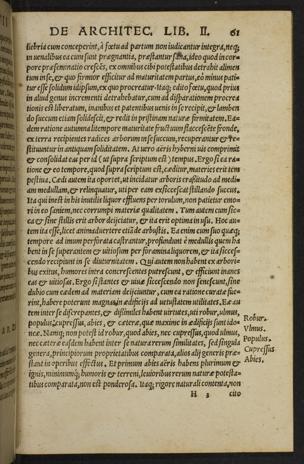 DE ARCHITEC. LIB. II. 61
liebria cum conceperint, à fœtu ad partum non iudicantur integra, neq;
in uenalibus ea cum sunt prægnantia, præstantur sana, ideo quod in cor-
pore præseminatio crescẽs, ex omnibus cibi potestatibus detrahit alimen
tum in se, & quo firmior efficitur ad maturitatem partus, eò minus pati-
tur esse solidum id ipsum, ex quo procreatur. Itaq; edito fœtu, quod prius
in aliud genus incrementi detrahebatur, cum ad disparationem procrea
tionis est liberatum, inanibus et patentibus uenis in se recipit, & lamben
do succum etiam solidescit, & redit in pristinam naturæ firmitatem. Ea-
dem ratione autumnali tempore maturitate fructuum flaccescẽte fronde,
ex terra recipientes radices arborum in se succum, recuperantur & re-
stituuntur in antiquam soliditatem. At uero aëris hyberni uis comprimit
& consolidat eas per id (ut supra scriptum est) tempus. Ergo si ea ra-
tione & eo tempore, quod supra scriptum est, cæditur, materies erit tem
pestiua. Cædi autem ita oportet, ut incidatur arboris crassitudo ad mediam
medullam, & relinquatur, uti per eam exsiccescat stillando succus.
Ita qui inest in his inutilis liquor effluens per torulum, non patietur emo
ri in eo saniem, nec corrumpi materiæ qualitatem. Tum autem cum sic-
ca & sine stillis erit arbor deijciatur, & ita erit optima in usu. Hoc au-
tem ita esse, licet animaduertere etiã de arbustis. Ea enim cum suo quæq;
tempore ad imum perforata castrantur, profundunt è medullis quem ha
bent in se superantem & uitiosum per foramina liquorem, & ita sicces-
cendo recipiunt in se diuturnitatem. Qui autem non habent ex arbori-
bus exitus, humores intra concrescentes putrescunt, & efficiunt inanes
eas & uitiosas. Ergo si stantes & uiuæ siccescendo non senescunt, sine
dubio cum eædem ad materiam deijciuntur, cum ea ratione curatæ fue-
rint, habere poterunt magnas in ædificijs ad uetustatem utilitates. Eæ au
tem inter se discrepantes, & dissimiles habent uirtutes, uti robur, ulmus,
populus, cupressus, abies, & cæteræ, quæ maximæ in ædificijs sunt ido-
neæ. Namq; non potest id robur, quod abies, nec cupressus, quod ulmus,
nec cæteræ easdem habent inter se naturæ rerum similitates, sed singula
genera, principiorum proprietatibus comparata, alios alij generis præ-
stant in operibus effectus. Et primum abies aëris habens plurimum &
ignis, minimumq; humoris & terreni, leuioribus rerum naturæ potesta-
tibus comparata, non est ponderosa. Itaq; rigore naturali contenta, non
H 3 cito
Robur.
Vlmus.
Populus.
Cupressus
Abies.